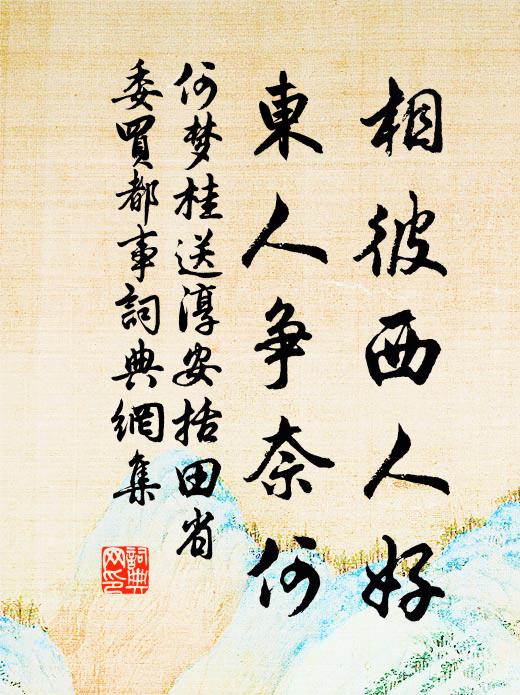 相彼西人好
東人争奈何
何梦桂送淳安括田省
委買都事詞典網集
詞典
网印